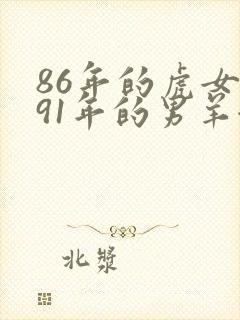 86年的虎女
91年的男羊
北漿